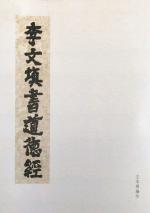 李文田書道德經